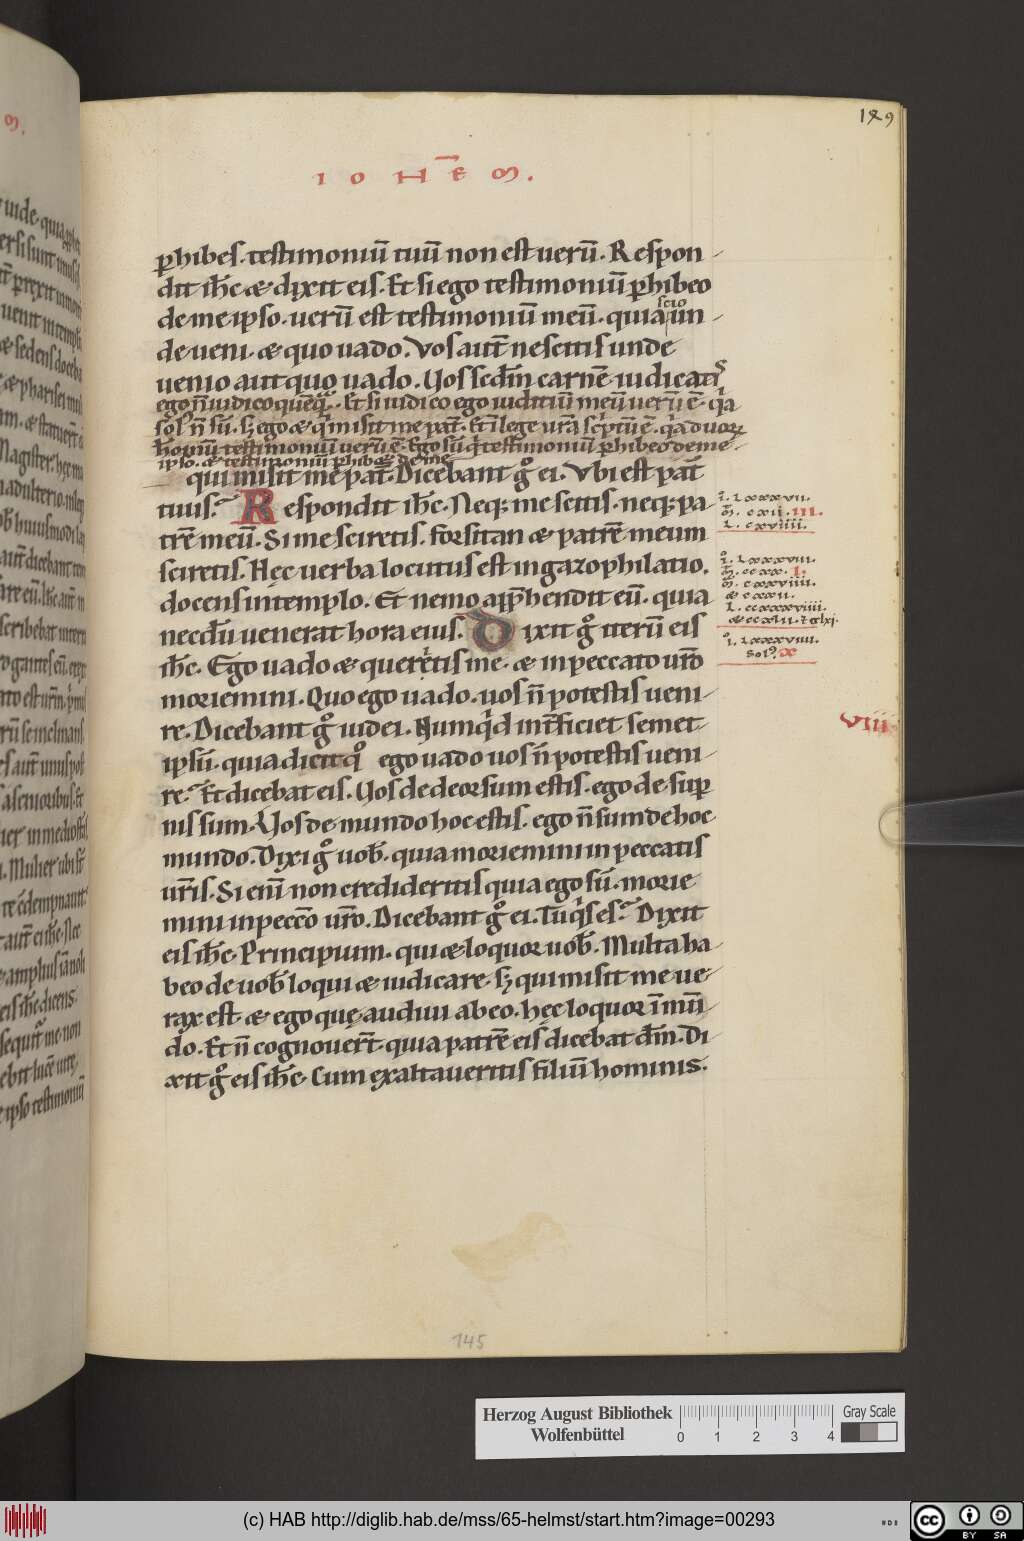 149
IOHEM.
phibes. testimoniū tuū non est uerū. Respon-
dit ihc & dixit eis. Et si ego testimoniū phibeo
de me ipso. uerū est testimoniū meū. quia scio un-
de ueni. & quo uado. Vos aut nescitis unde
uenio aut quo uado. Vos scdm carnē iudicatis
ego n̄ iudico quēq. Et si iudico ego iuditiū meū uerū ē. qa
solus n̄ sū. s; ego & q misit me pat. Et ī lege ura scptū ē. qa duoꝝ
hominū testimoniū uerū ē. Ego sū q testimoniū phibeo de me
ipso. & testimoniū phib& de me
qui misit me pat. Dicebant g ei. Vbi est pat
tuus? Respondit ihc. Neq; me scitis. neq; pa-
trē meū. Si me sciretis. forsitan & patrē meum
sciretis. Hęc uerba locutus est in gazophilatio.
docens in templo. Et nemo apphendit eū. quia
necdū uenerat hora eius. Dixit g iterū eis
ihc. Ego uado & queretis me. & in peccato uro
moriemini. Quo ego uado. uos n̄ potestis ueni-
re. Dicebant g iudei. Numqd intficiet semet-
ipsū. quia dicit q ego uado uos n̄ potestis ueni-
re? Et dicebat eis. Vos de deorsum estis. ego de sup-
nis sum. Vos de mundo hoc estis. ego n̄ sum de hoc
mundo. Dixi g uob. quia moriemini in peccatis
uris. Si enī non credideritis quia ego sū. morie-
mini in pecco uro. Dicebant g ei. Tu qs es? Dixit
eis ihc. Principium. qui & loquor uob. Multa ha-
beo de uob loqui & iudicare. s; qui misit me ue-
rax est. & ego quę audiui ab eo. hęc loquor ī mū-
do. Et n̄ cognouert. quia patrē eis dicebat dm. Di-
xit g eis ihc. Cum exaltaueritis filiū hominis.
I. LXXXVII.
M. CXII. III.
L. CXVIIII.
I. LXXXVIII.
M. CCXX. I.
M. CXXVIIII.
& CXXII.
L. CCXXXVIIII.
I. LXXXVIIII.
Sol X
VIII
145
Herzog August Bibliothek
Wolfenbüttel
0 1 2 3 4
Gray Scale
(c) HAB http://diglib.hab.de/mss/65-helmst/start.htm?image=00293
cc BY SA